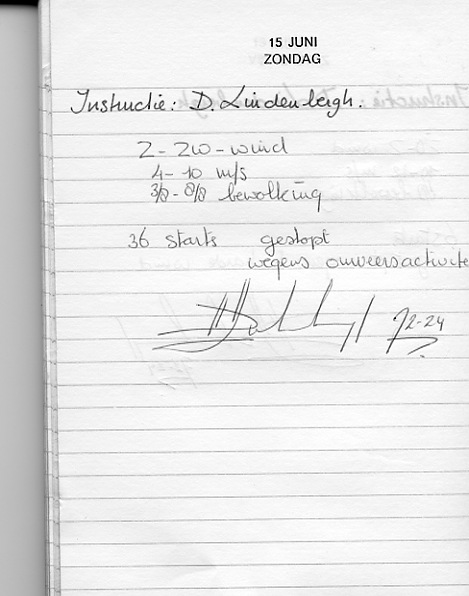 15 JUNI
ZONDAG
Instructie: D. Lindenbergh.
Z - ZW - wind
4 - 10 m/s
3/8 - 8/8 bewolking
36 starts gestopt
wegens onweersactivite